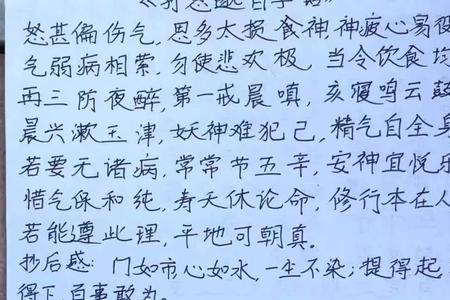 怒甚偏伤气，思多太损食神，神疲心易役
气弱病相萦，勿使悲欢极，当令饮食均
再三防夜醉，第一戒晨嗔，亥寝鸣云鼓
晨兴漱玉津，妖神难犯己，精气自全身
若要无诸病，常常节五辛，安神宜悦乐
惜气保和纯，寿夭休论命，修行本在人
若能遵此理，平地可朝真。
抄后感：门如市心如水，一尘不染；提得起
得下，百事敢为。